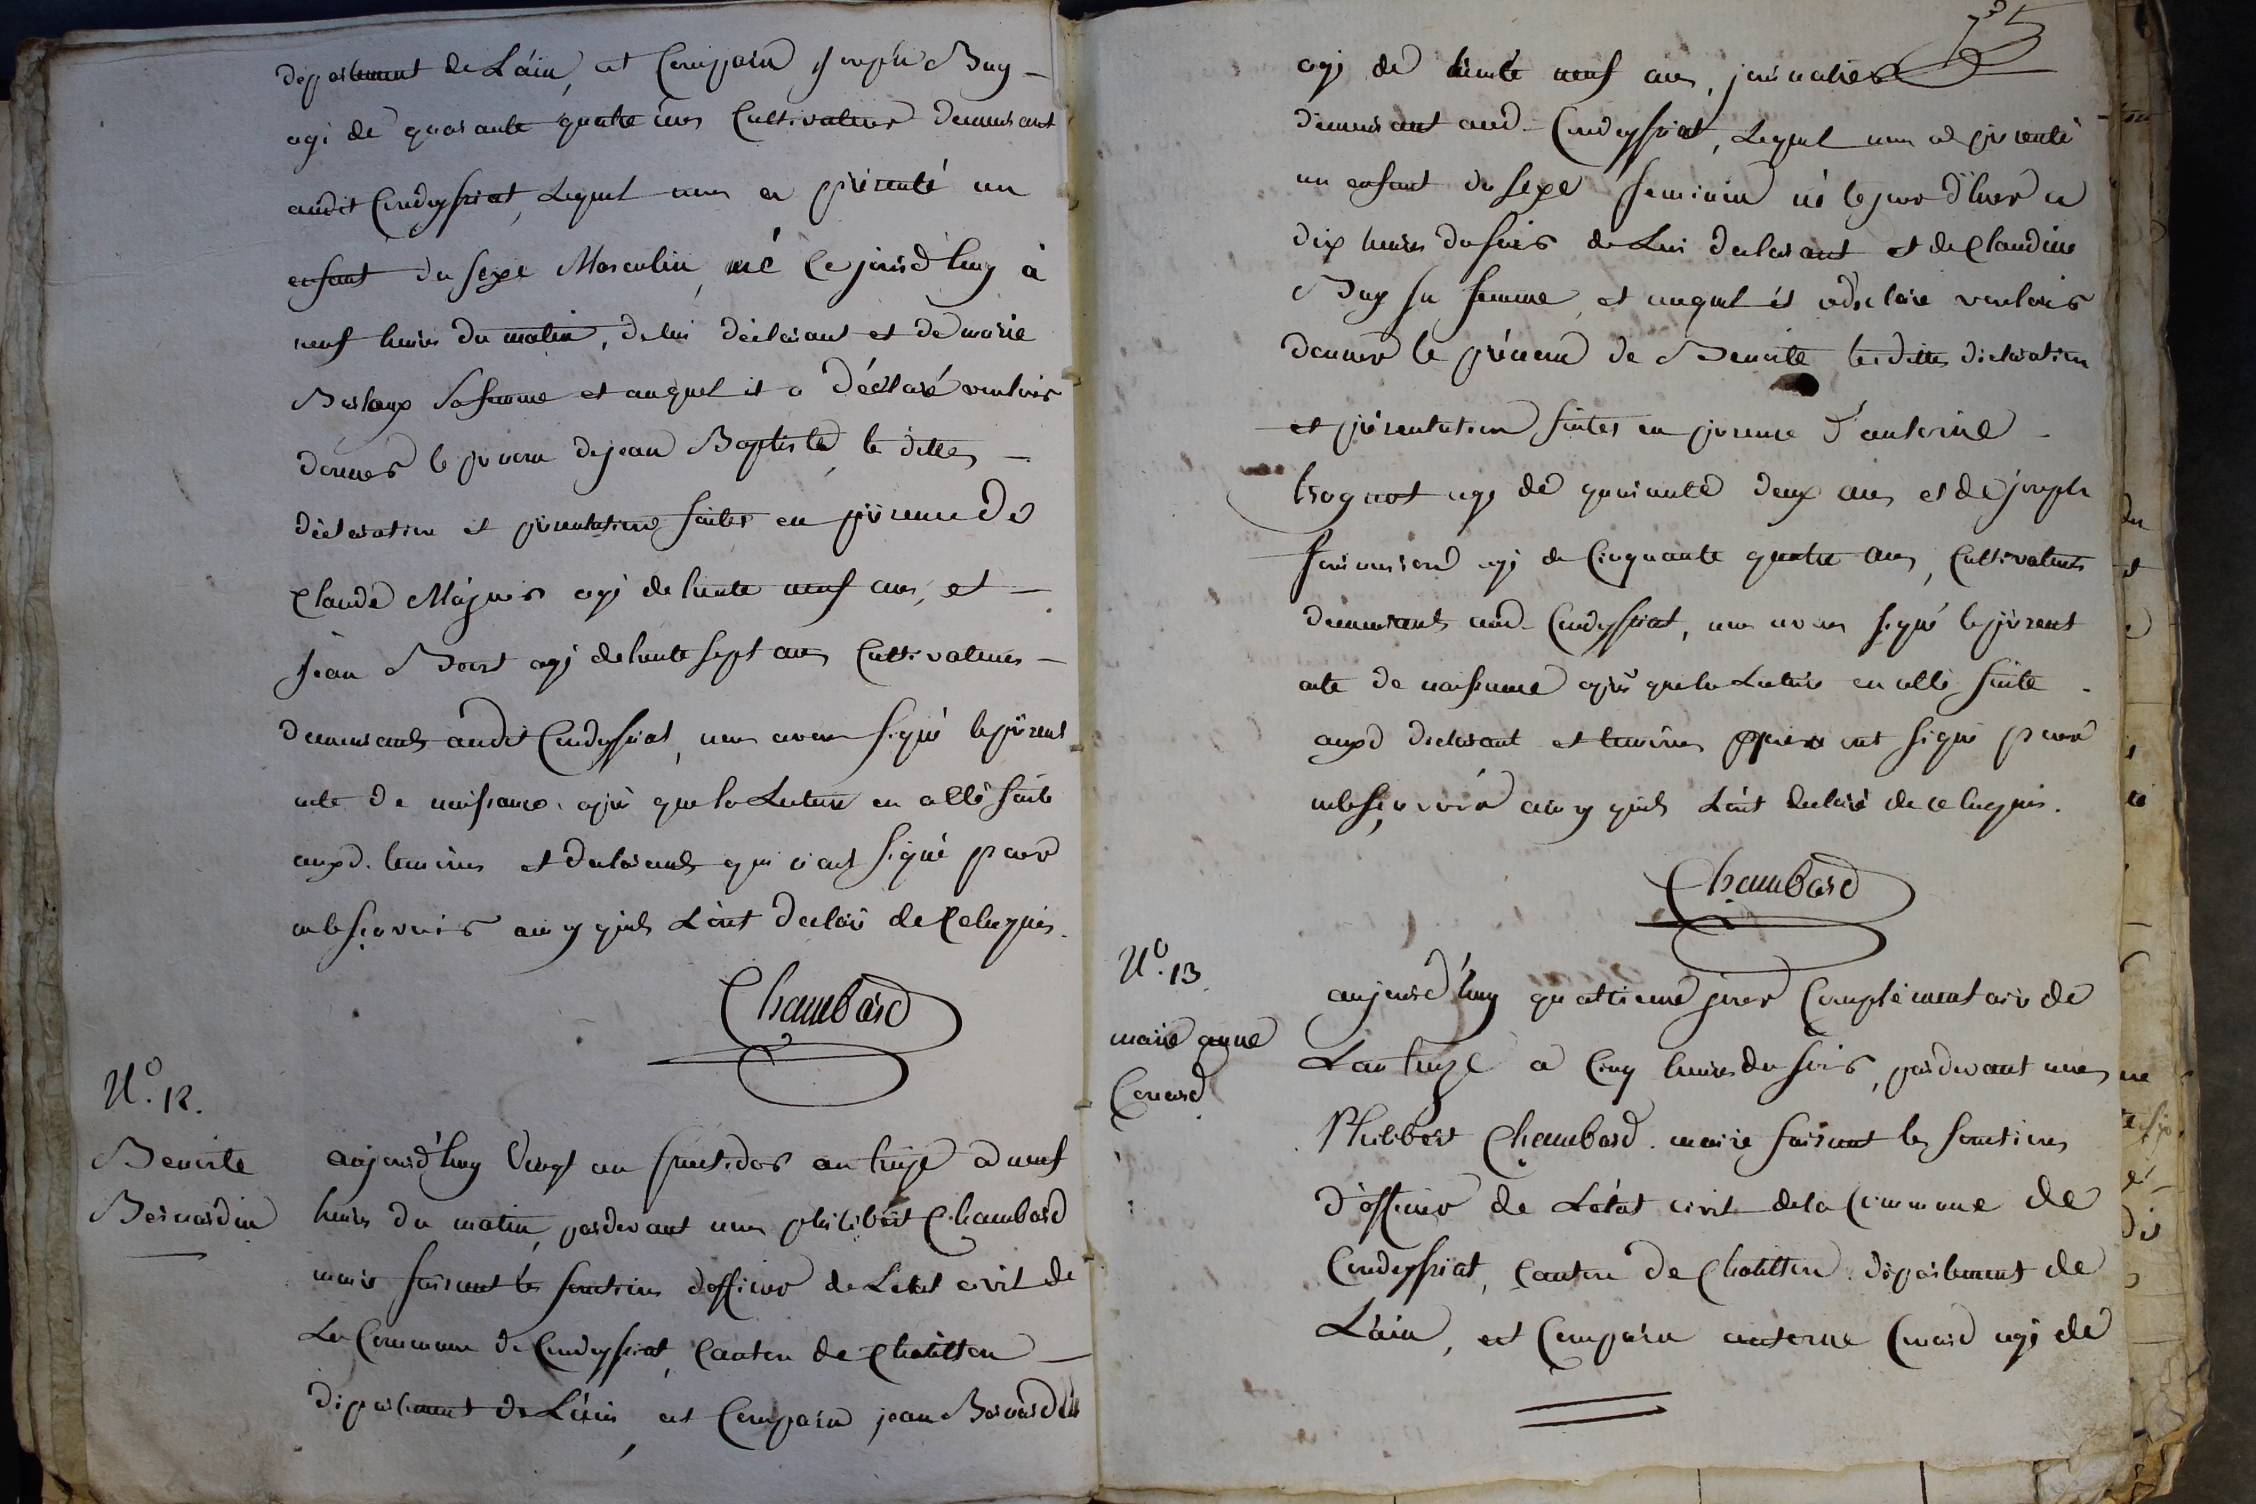 département de L'ain, est Comparu joseph Buy —
agé de quarante quatre ans Cultivateur demeurant
audit Condeyssiat, Lequel nous a présenté un
enfant du sexe Masculin, né Cejourd'huy à
neuf heures du matin, de lui déclarant et de marie
sa femme et auquel il a Déclaré vouloir
donner le prenom de jean Baptiste, le dittes —
déclaration et présentation faites en présence De
Claude agé de trente neuf ans, et —
jean agé de trente sept ans Cultivateurs —
demeurants audit Condeyssiat, nous avons signé le présent
acte de naissance, après que la Lecture en a été faite
auxd. temoins et declarants qui n'ont signé pour
ne le sçavoir ainsy qu'ils L'ont declaré de Ce luy requis.
Chambard
N.º 12.
Benoite
Bernardin
aujourd'huy Vingt un fructidor an treize a neuf
heures du matin, pardevant nous philibert Chambard
maire faisant les fonctions d'officier de L'état civil de
La Commune de Condeyssiat, Canton de Chatillon —
département de L'ain, est Comparu jean Bernardin
agé de trente neuf ans, journalier
demeurant aud. Condeyssiat, Lequel nous a présenté
un enfant du sexe feminin né le jour d'hier a
dix heures du soir de Lui declarant et de Claudine
Buy sa femme, et auquel il a declaré vouloir
donner le prénom de Benoite les dittes declaration
et présentation faites en presence d'antoine —
agé de quarante deux ans et de joseph
agé de Cinquante quatre ans, Cultivateurs
demeurants aud. Condeyssiat, nous avons signé le présent
acte de naissance après que la Lecture en a été faite .
auxd declarant et temoins ont signé pour
ne le sçavoir ainsy qu'ils L'ont declaré de ce luy requis.
Chambard
N.º 13.
marie anne
Conard
aujourd'huy quattrieme jour Complémentaire de
L'an treize a Cinq heures du soir, pardevant nous
Philibert Chambard. maire faisant les fonctions
d'officier de L'état civil de la Commune de
Condeyssiat, Canton de Chatillon. département de
L'ain, est Comparu antoine Conard agé de